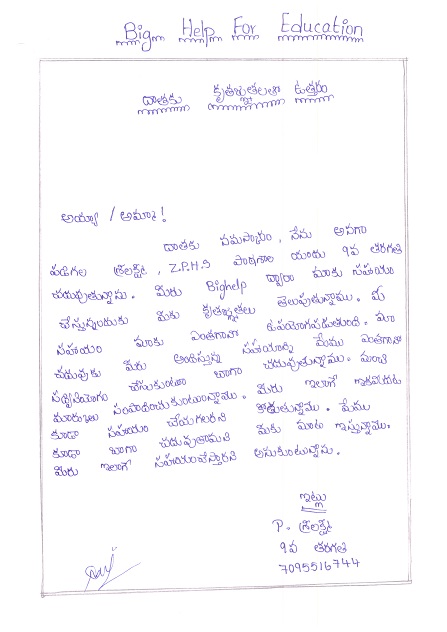 Big Help For Education
దాతకు కృతజ్ఞతలతా ఉత్తరం
అయ్యా / అమ్మా!
దాతకు నమస్కారం, నేను అనగా
పడిగల శ్రీలక్ష్మి, Z.P.H.S పాఠశాల యందు 9వ తరగతి
చదువుతున్నాను. మీరు Bighelp ద్వారా మాకు సహాయం
చేస్తున్నందుకు మీకు కృతజ్ఞతలు తెలుపుతున్నాము. మీ
సహాయం మాకు ఎంతగానో ఉపయోగపడుతుంది. మా
చదువుకు మీరు అందిస్తున్న సహాయాన్ని మేము ఎంతగానో
సద్వినియోగం చేసుకుంటూ బాగా చదువుతున్నాము. మంచి
మార్కులు సంపాదించుకుంటున్నాము. మీరు ఇలాగే ఇకముందుకు
కూడా సహాయం చేయగలరని కోరుతున్నాము. మేము
కూడా బాగా చదువుతామని మీకు మాట ఇస్తున్నాము.
మీరు ఇలాగే సహాయంచేస్తారని అనుకుంటున్నాను.
ఇట్లు
P. శ్రీలక్ష్మి
9వ తరగతి
7095516744